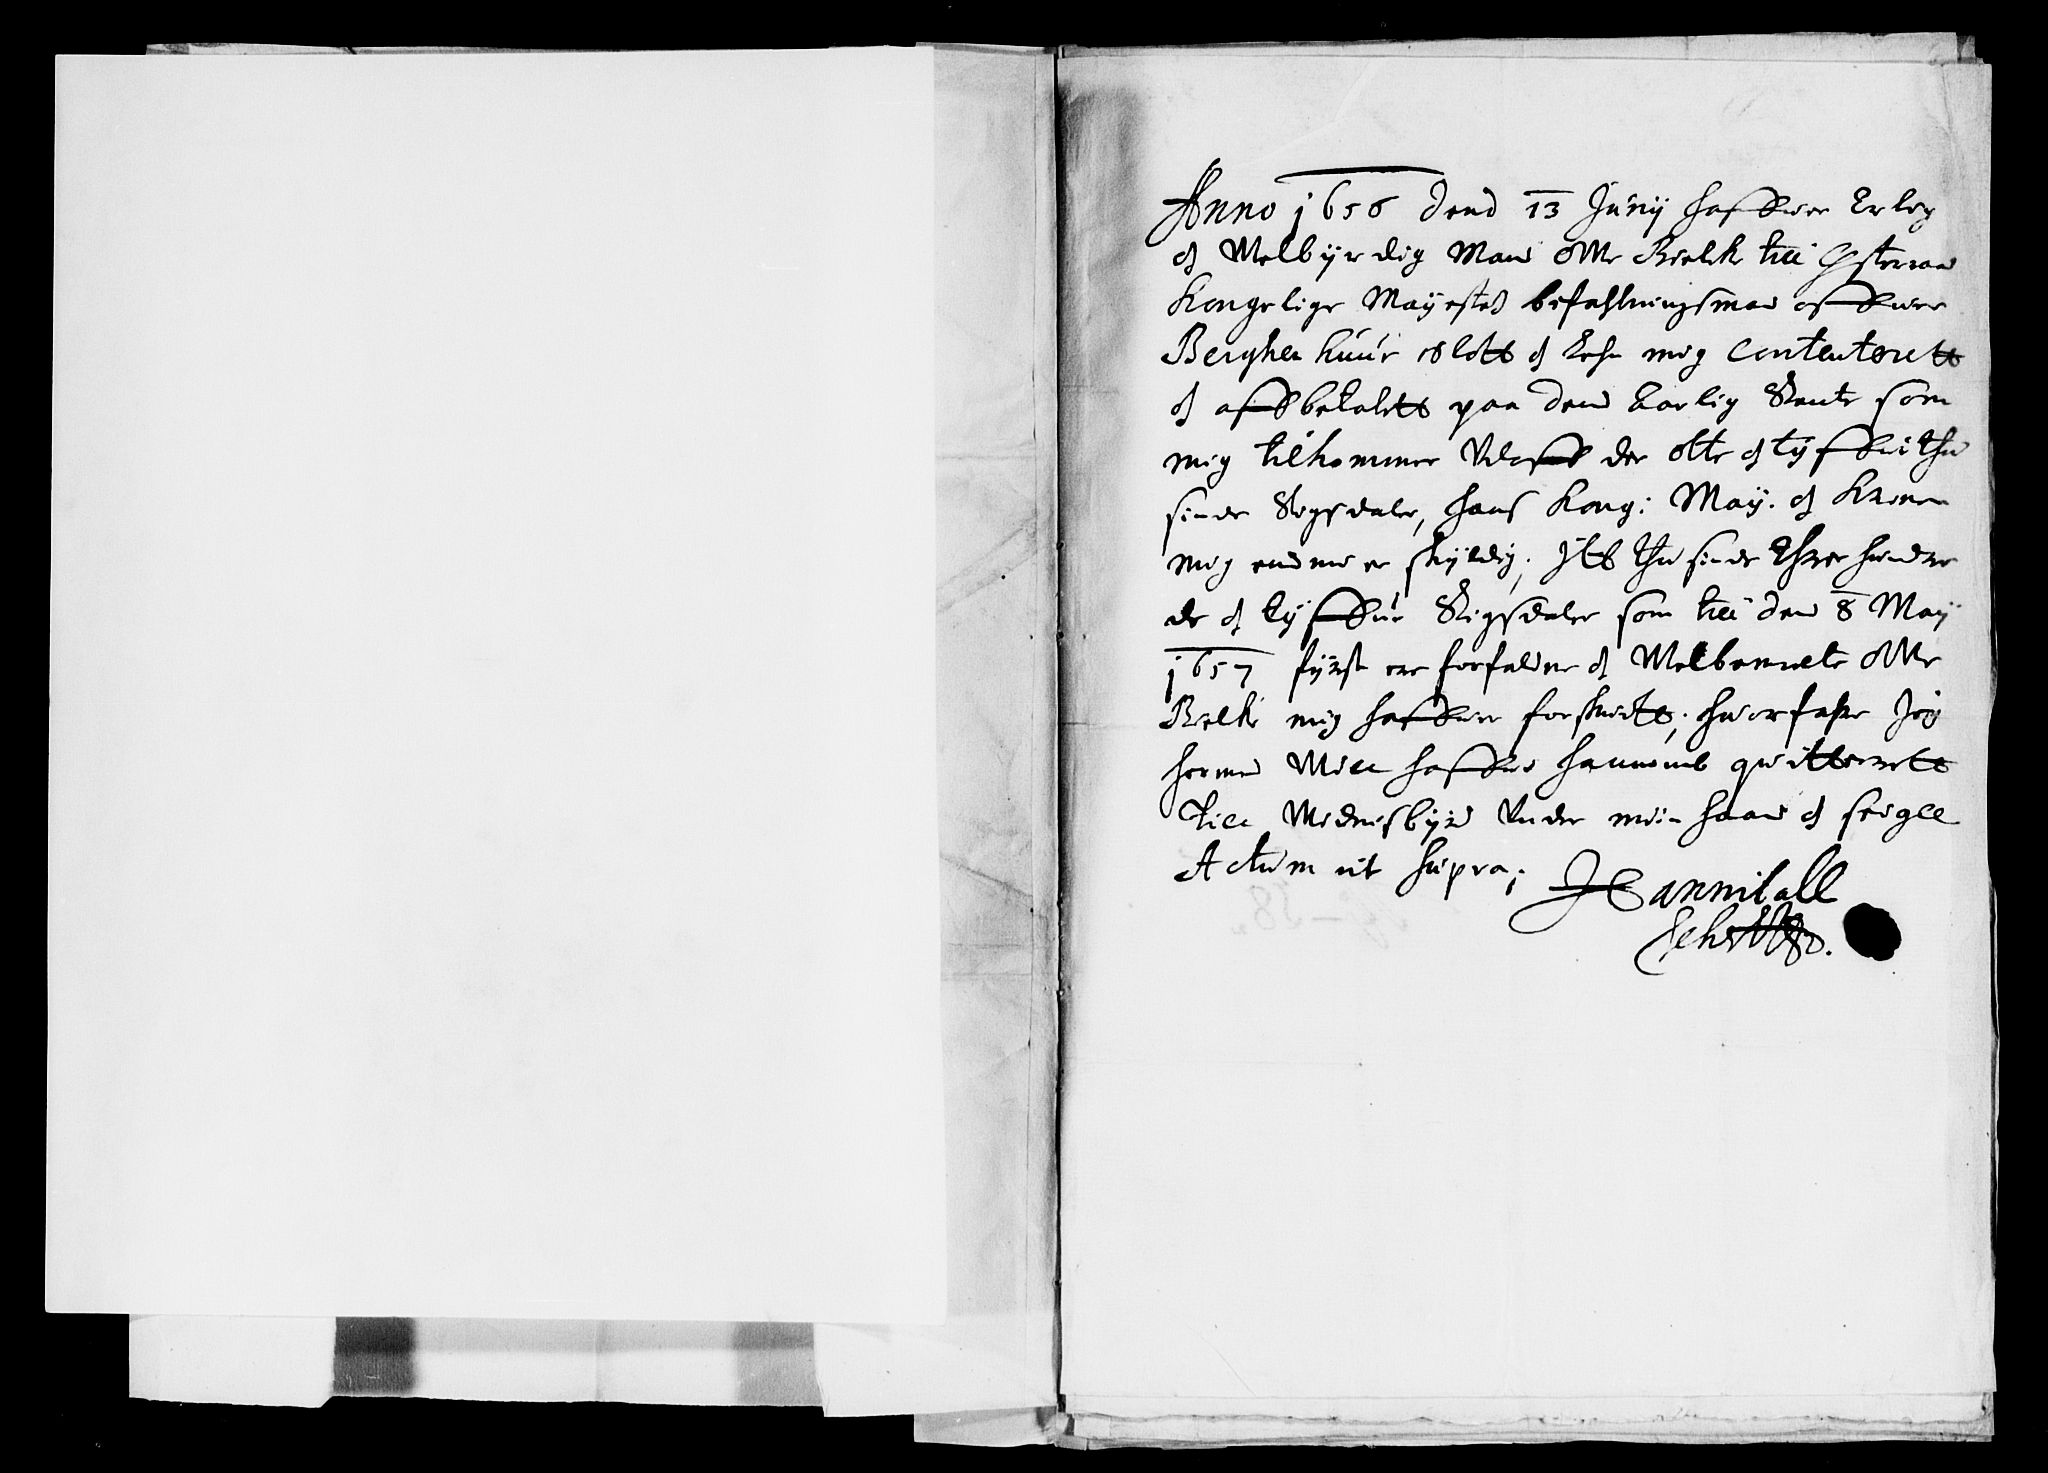 Anno 1656 Dend 13 Junij haffuer Erlig
og Welbyrdig Mand Offue Bielke till Østeraad
Kongelige Mayestets befahlningsmand offuer
Berghenhuus Slott og Lehn mig contenterett
og affbetalett paa dend Aarlig Rente som
mig tilkommer Udaff de otte og tyffue thu
sinde Rigsdaler, hans Kong: May. og Kronen
mig endnu er skyldig, Itt thusinde threhundre
de og tyffue Rigsdaler som till den 8 May
1657 fyrst ere forfaldne og Welbemelte Offue
Bielke mig haffuer forstract; huorfore Jeg
hermed Will haffue hannomb quitterett
till Widnisbyrd Under min haand og seigll
Actum ut supra;
Hanniball
Sehested.